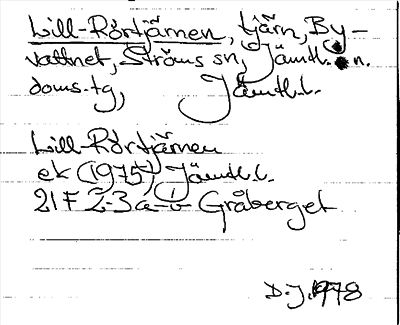 Lill-Rörtjärnen, tjärn, By-
vattnet, Ströms sn, Jämtl. n.
doms-tg, Jämtl.l.
Lill-Rörtjärnen
ek (1975) Jämtl.l.
21F 2-3 a-b Gråberget
D.J. 1978